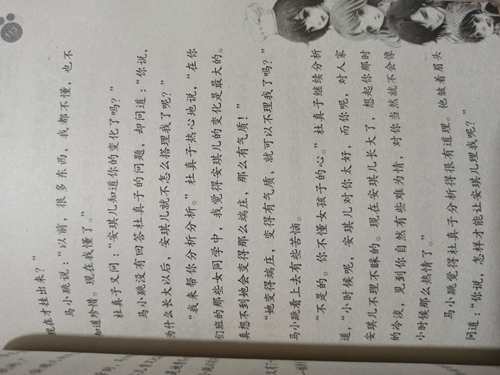 现在才挂出来？”
马小跳说：“以前，很多东西，我都不懂，也不
知道珍惜，现在我懂了。”
杜真子又问：“安琪儿知道你的变化了吗？”
马小跳没有回答杜真子的问题，却问道：“你说，
为什么长大以后，安琪儿就不怎么搭理我了呢？”
“我来帮你分析分析。”杜真子热心地说，“在你
们班的那些女同学中，我觉得安琪儿的变化是最大的。
真想不到她会变得那么端庄，那么有气质！”
“她变得端庄，变得有气质，就可以不理我了吗？”
马小跳看上去有些苦恼。
“不是的。你不懂女孩子的心。”杜真子继续分析
道，“小时候呢，安琪儿对你太好，而你呢，对人家
安琪儿不理不睬的。现在安琪儿长大了，想起你那时
的冷淡，见到你自然有些难为情，对你当然就不会像
小时候那么热情了。”
马小跳觉得杜真子分析得很有道理。他皱着眉头
问道：“你说，怎样才能让安琪儿理我呢？”